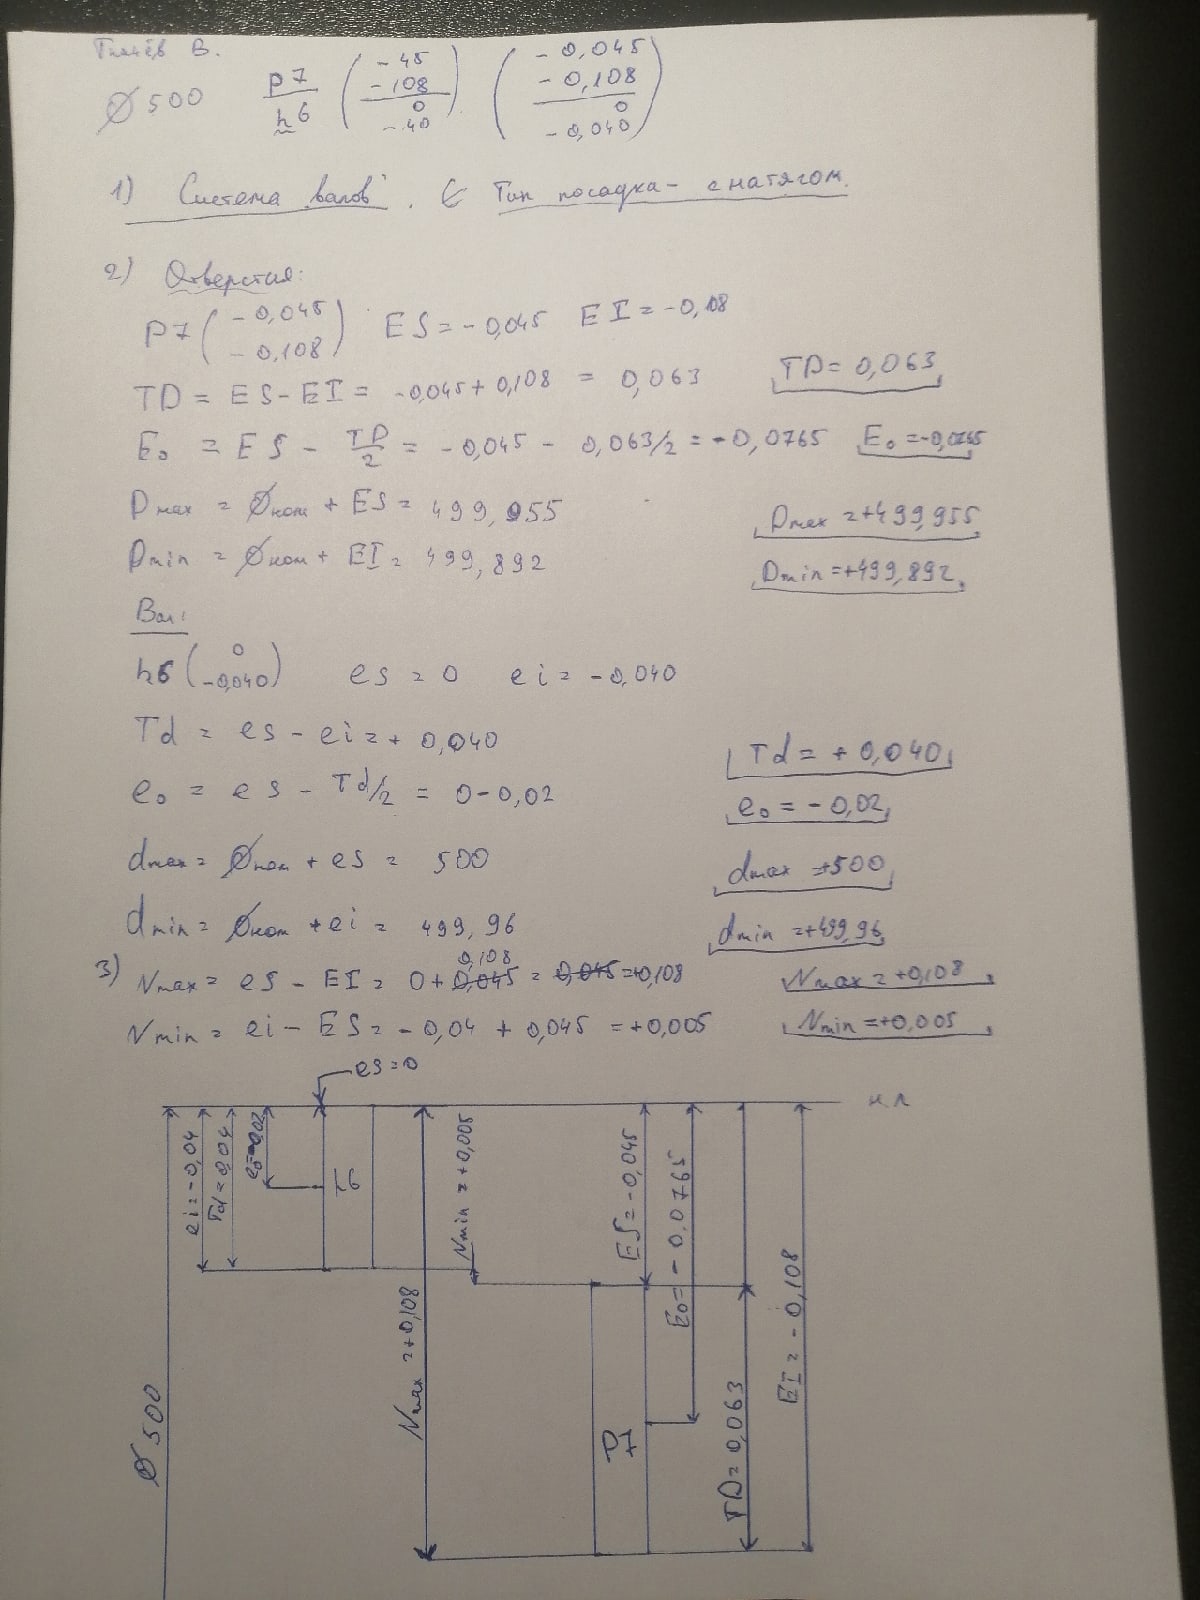 В.
∅ 500 P7/h6 (-45 -108 / 0 -40). (-0,045 -0,108 / 0 -0,040)
1) Система валов. Тип посадка - с натягом.
2) Отверстия:
P7 (-0,045 -0,108) ES = -0,045 EI = -0,108
TD = ES - EI = -0,045 + 0,108 = 0,063 TD = 0,063
E₀ = ES - TD/2 = -0,045 - 0,063/2 = -0,0765 E₀ = -0,0765
Dmax = ∅ном + ES = 499,955 Dmax = +499,955
Dmin = ∅ном + EI = 499,892 Dmin = +499,892
Вал:
h6 (0 -0,040) es = 0 ei = -0,040
Td = es - ei = + 0,040 Td = + 0,040
e₀ = es - Td/2 = 0 - 0,02 e₀ = - 0,02
dmax = ∅ном + es = 500 dmax = +500
dmin = ∅ном + ei = 499,96 dmin = +499,96
0,108
3) Nmax = es - EI = 0 + 0,045 = 0,045 = +0,108 Nmax = +0,108
Nmin = ei - ES = - 0,04 + 0,045 = +0,005 Nmin = +0,005
es = 0
н л
ei = -0,04
Td = 0,04
e₀ = -0,02
h6
Nmax = +0,108
Nmin = +0,005
ES = -0,045
E₀ = - 0,0765
P7
TD = 0,063
EI = - 0,108
∅ 500